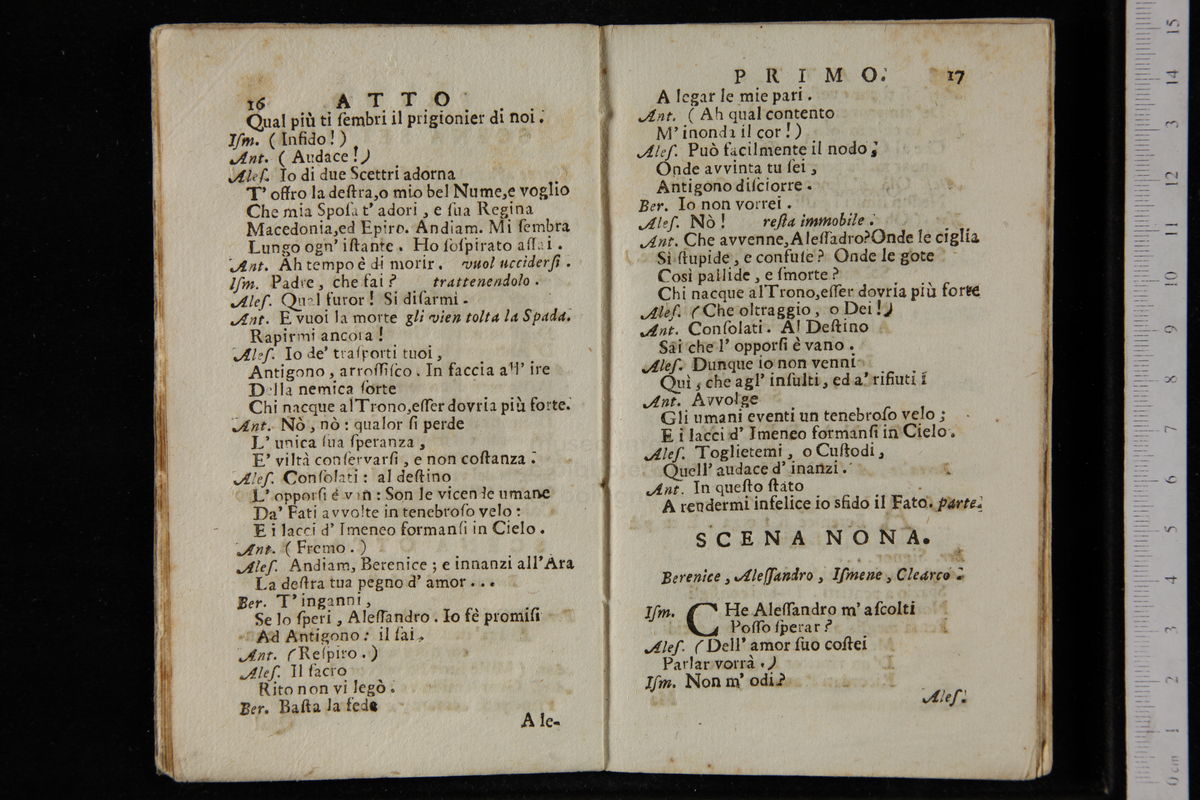 16 ATTO
Qual più ti ſembri il prigionier di noi.
Iſm. (Infido!)
Ant. (Audace!)
Aleſ. Io di due Scettri adorna
T' offro la deſtra,o mio bel Nume,e voglio
Che mia Spoſa t' adori, e ſua Regina
Macedonia,ed Epiro. Andiam. Mi ſembra
Lungo ogn' iſtante. Ho ſoſpirato aſſai.
Ant. Ah tempo è di morir. vuol ucciderſi.
Iſm. Padre, che fai? trattenendolo.
Aleſ. Qual furor! Si diſarmi.
Ant. E vuoi la morte gli vien tolta la Spada.
Rapirmi ancora!
Aleſ. Io de' traſporti tuoi,
Antigono, arroſſiſco. In faccia all' ire
Della nemica ſorte
Chi nacque alTrono,eſſer dovria più forte.
Ant. Nò, nò: qualor ſi perde
L' unica ſua ſperanza,
E' viltà conſervarſi, e non coſtanza.
Aleſ. Conſolati: al deſtino
L' opporſi é van: Son le vicende umane
Da' Fati avvolte in tenebroſo velo:
E i lacci d' Imeneo formanſi in Cielo.
Ant. (Fremo.)
Aleſ. Andiam, Berenice; e innanzi all'Ara
La deſtra tua pegno d' amor...
Ber. T' inganni,
Se lo ſperi, Aleſſandro. Io fè promiſi
Ad Antigono: il ſai.
Ant. (Reſpiro.)
Aleſ. Il ſacro
Rito non vi legò.
Ber. Baſta la fede
A le-
PRIMO. 17
A legar le mie pari.
Ant. (Ah qual contento
M' inonda il cor!)
Aleſ. Può facilmente il nodo,
Onde avvinta tu ſei,
Antigono diſciorre.
Ber. Io non vorrei.
Aleſ. Nò! reſta immobile.
Ant. Che avvenne,Aleſſadro?Onde le ciglia
Sì ſtupide, e confuſe? Onde le gote
Così pallide, e ſmorte?
Chi nacque alTrono,eſſer dovria più forte
Aleſ. (Che oltraggio, o Dei!)
Ant. Conſolati. Al Deſtino
Sai che l' opporſi è vano.
Aleſ. Dunque io non venni
Quì, che agl' inſulti, ed a' rifiuti!
Ant. Avvolge
Gli umani eventi un tenebroſo velo;
E i lacci d' Imeneo formanſi in Cielo.
Aleſ. Toglietemi, o Cuſtodi,
Quell' audace d' inanzi.
Ant. In queſto ſtato
A rendermi infelice io sfido il Fato. parte.
SCENA NONA.
Berenice, Aleſſandro, Iſmene, Clearco.
Iſm. CHe Aleſſandro m' aſcolti
Poſſo ſperar?
Aleſ. (Dell' amor ſuo coſtei
Parlar vorrà.)
Iſm. Non m' odi?
Aleſ.